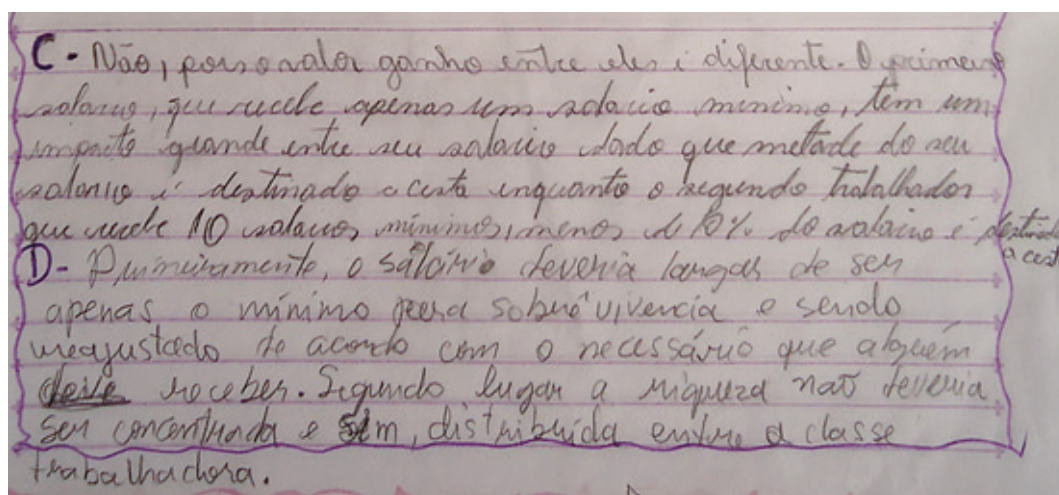 C - Não, pois o valor ganho entre eles é diferente. O primeiro
salario, que recebe apenas um salario minimo, tem um
impacto grande entre seu salario dado que metade do seu
salario é destinado a cesta enquanto o segundo trabalhador
que recebe 10 salarios minimos, menos de 10% do salario é destinado
a cesta
D - Primeiramente, o salário deveria largar de ser
apenas o mínimo para sobrevivencia e sendo
reajustado de acordo com o necessário que alguém
deve receber. Segundo lugar a riqueza não deveria
ser concentrada e sim, distribuida entre a classe
trabalhadora.